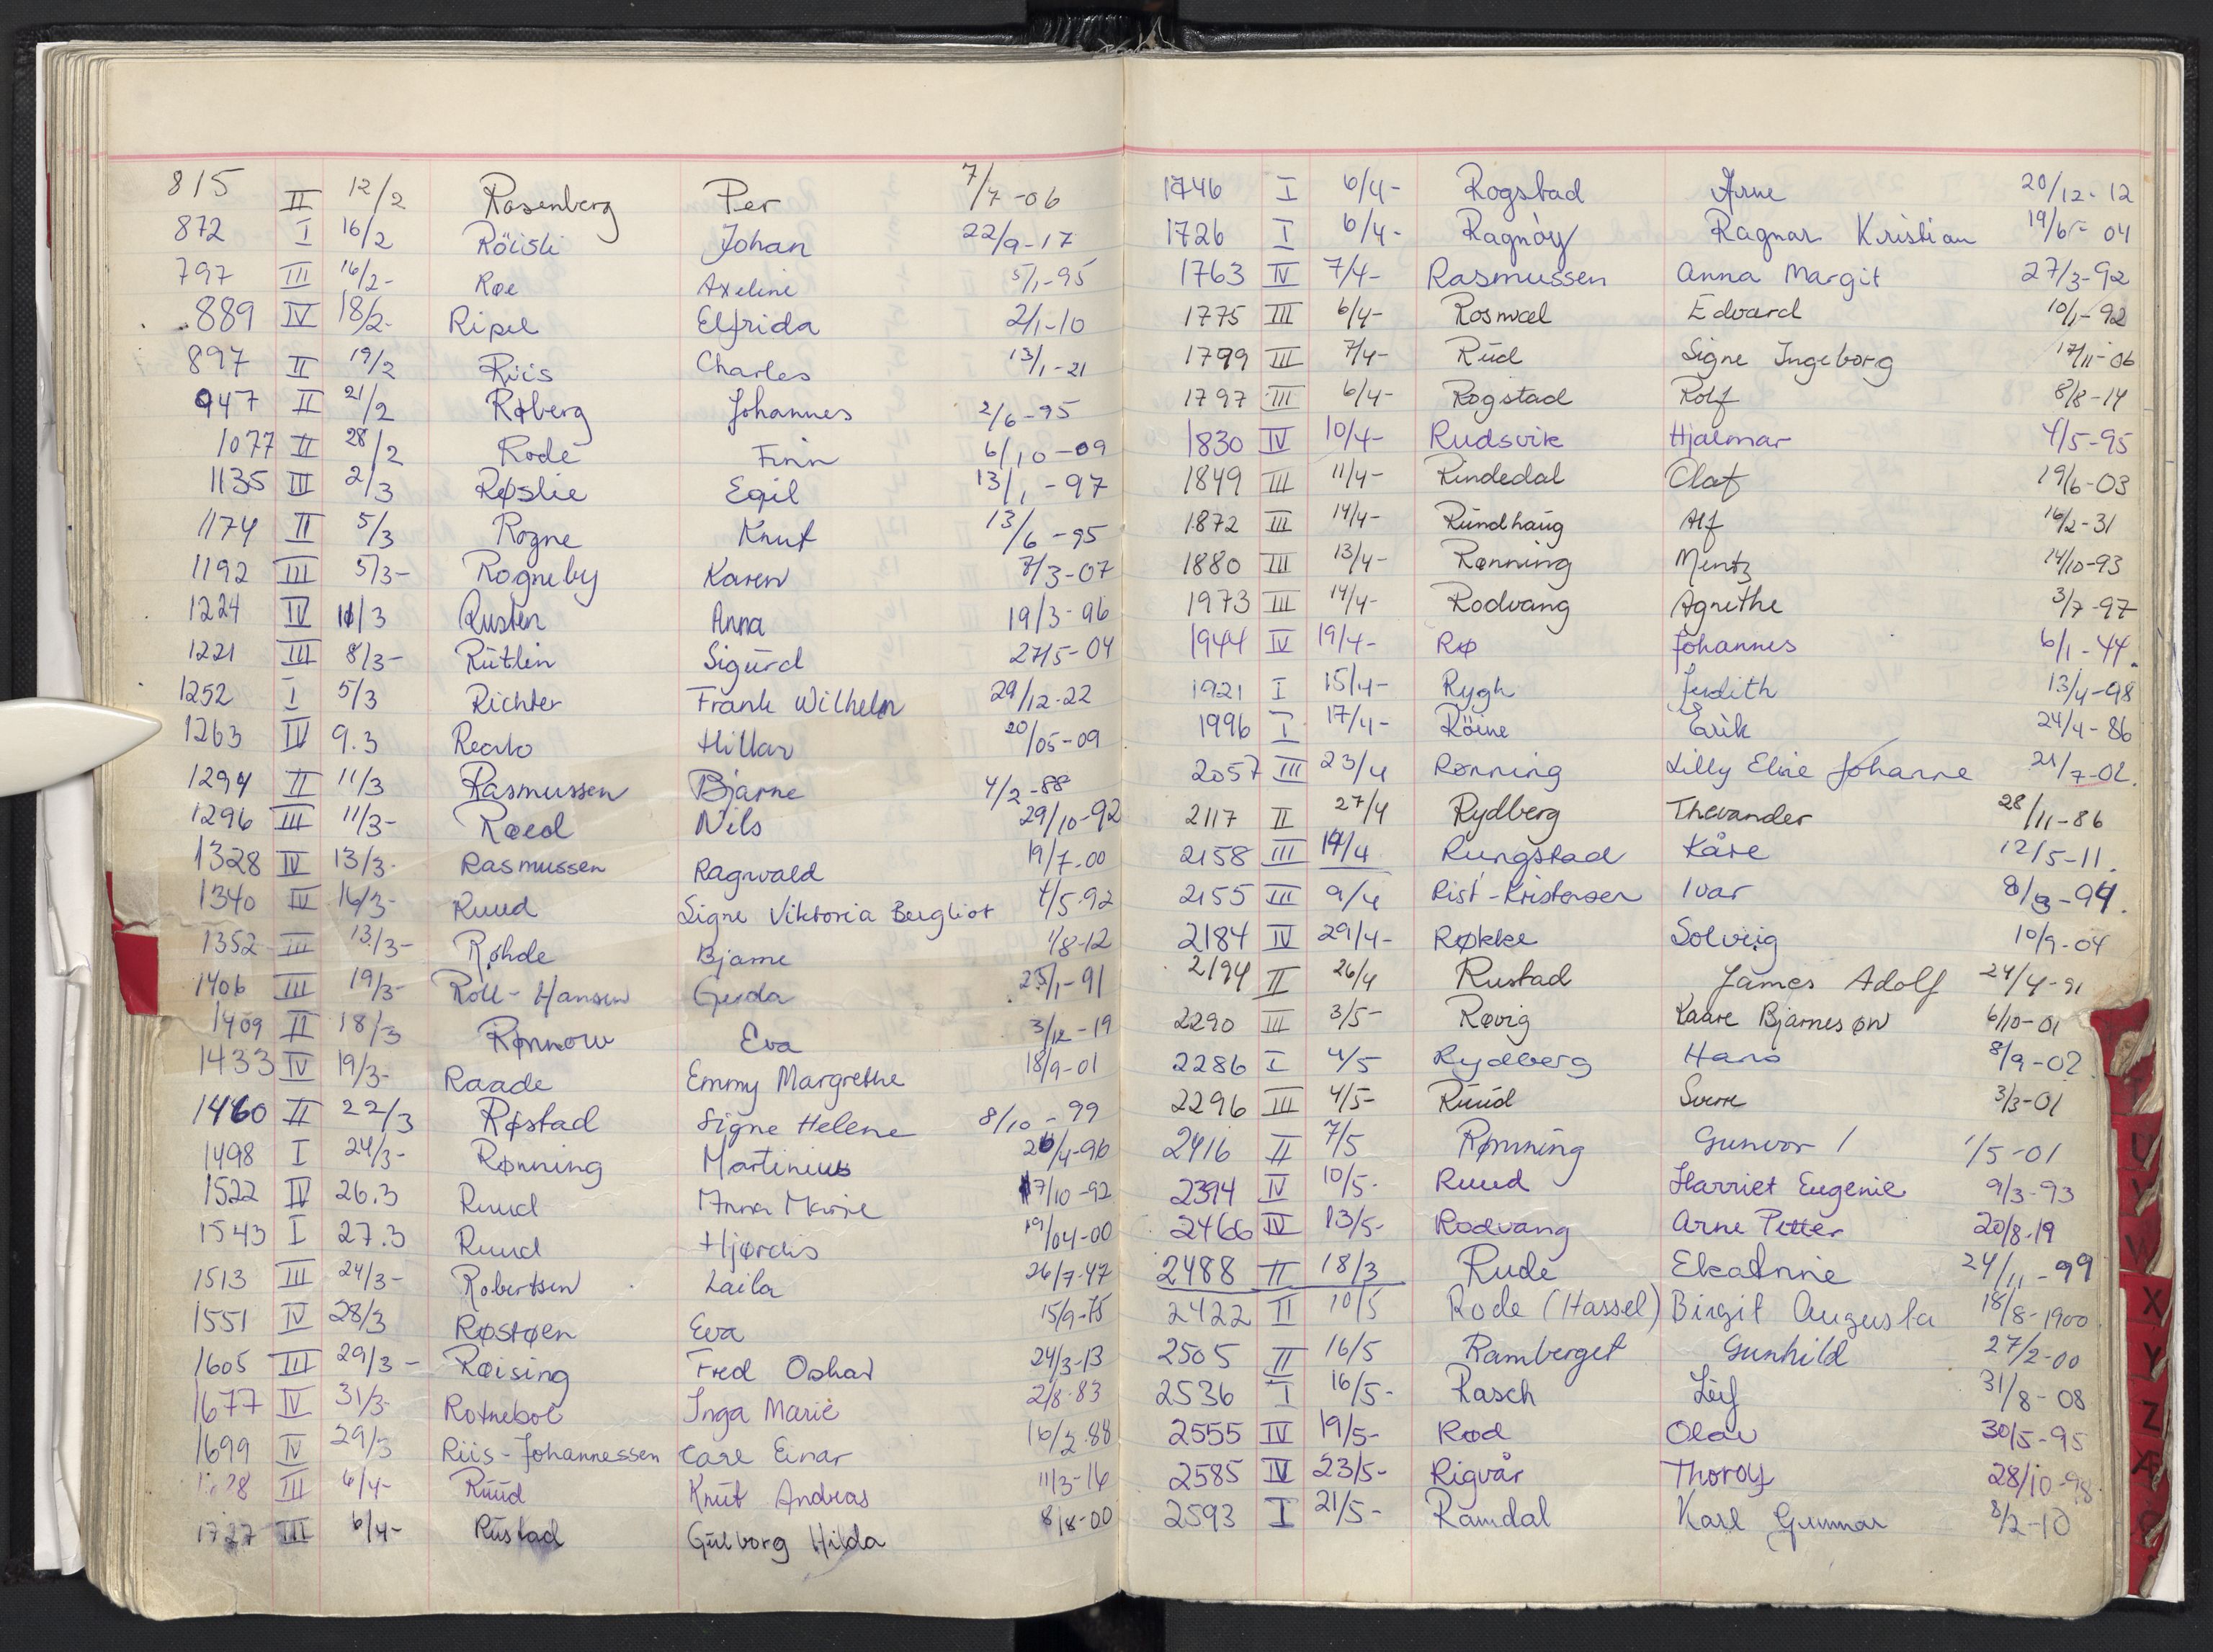 815 II 12/2 Rosenberg Per 7/7-06
872 I 16/2 Röisli Johan 22/9-17
797 III 16/2- Roe Axeline 5/1-95
889 IV 18/2- Ripel Elfrida 2/1-10
897 II 19/2 Riis Charles 13/1-21
947 II 21/2 Røberg Johannes 2/6-95
1077 II 28/2 Rode Finn 6/10-09
1135 III 2/3 Røslie Egil 13/1-97
1174 II 5/3 Rogne Knut 13/6-95
1192 III 5/3- Rogneby Karen 7/3-07
1224 IV 11/3 Rusten Anna 19/3-96
1221 III 8/3- Rutlin Sigurd 27/5-04
1252 I 5/3 Richter Frank Wilhelm 29/12-22
1263 IV 9.3 Hillar 20/05-09
1294 II 11/3 Rasmussen Bjarne 4/2-88
1296 III 11/3- Roed Nils 29/10-92
1328 IV 13/3- Rasmussen Ragnvald 19/7-00
1340 IV 16/3- Ruud Signe Viktoria Bergliot 4/5-92
1352 III 13/3- Røhde Bjarne 1/8-12
1406 III 19/3- Roll-Hansen Gerda 25/1-91
1409 II 18/3 Rønnow Eva 3/12-19
1433 IV 19/3- Raade Emmy Margrethe 18/9-01
1460 II 22/3 Røstad Signe Helene 8/10-99
1498 I 24/3- Rønning Martinius 26/4-96
1522 IV 26.3 Ruud Anna Marie 17/10-92
1543 I 27.3 Ruud Hjørdis 19/04-00
1513 III 24/3- Robertsen Laila 26/7-47
1551 IV 28/3 Røstøen Eva 15/9-75
1605 III 29/3- Røising Fred Oskar 24/3-13
1677 IV 31/3- Rotneboe Inga Marie 2/8-83
1699 IV 29/3 Riis-Johannessen Carl Einar 16/2-88
III 6/4- Ruud Knut Andreas 11/3-16
1727 III 6/4- Rustad Gulborg Hilda 8/8-00
1746 I 6/4- Rogstad Arne 20/12-12
1726 I 6/4- Ragnøy Ragnar Kristian 19/6-04
1763 IV 7/4- Rasmussen Anna Margit 27/3-92
1775 III 6/4- Rosnæl Edvard 10/1-92
1799 III 7/4- Rud Signe Ingeborg 17/11-06
1797 III 6/4- Rogstad Rolf 8/8-14
1830 IV 10/4- Rudsvik Hjalmar 4/5-95
1849 III 11/4- Rindedal Olaf 19/6-03
1872 III 14/4- Rundhaug Alf 16/2-31
1880 III 13/4- Rønning Mentz 14/10-93
1973 III 14/4- Rodvang Agnethe 3/7-97
1944 IV 19/4- Rø Johannes 6/1-44.
1921 I 15/4- Rygh Judith 13/4-98
1996 I 17/4- Röine Erik 24/4-86
2057 III 23/4 Rønning Lilly Elise Johanne 21/7-02.
2117 II 27/4 Rydberg Thevander 28/11-86
2158 III 19/4 Rungstad Kåre 12/5-11.
2155 III 9/4 Rist-Kristensen Ivar 8/3-94.
2184 IV 29/4- Røkke Solveig 10/9-04
2194 II 26/4 Rustad James Adolf 24/4-91
2290 III 3/5- Røvig Kaare Bjarnesøn 6/10-01
2286 I 4/5 Rydberg Hans 8/9-02
2296 III 4/5- Ruud Sverre 3/3-01
2416 II 7/5 Rønning Gunvor 1/5-01
2394 IV 10/5- Ruud Harriet Eugenie 9/3-93
2466 IV 13/5- Rodvang Arne Petter 20/8-19
2488 II 18/3 Rude Ekatrine 24/11-99
2422 II 10/5 Rode (Hassel) Birgit Augusta 18/8-1900
2505 II 16/5 Ramberget Gunhild 27/2-00
2536 I 16/5- Rasch Leif 31/8-08
2555 IV 19/5- Rød Olav 30/5-95
2585 IV 23/5- Rigvår Thorolf 28/10-98
2593 I 21/5- Ramdal Karl Gunnar 8/2-10
U
V
W
X
Y
Z
Æ